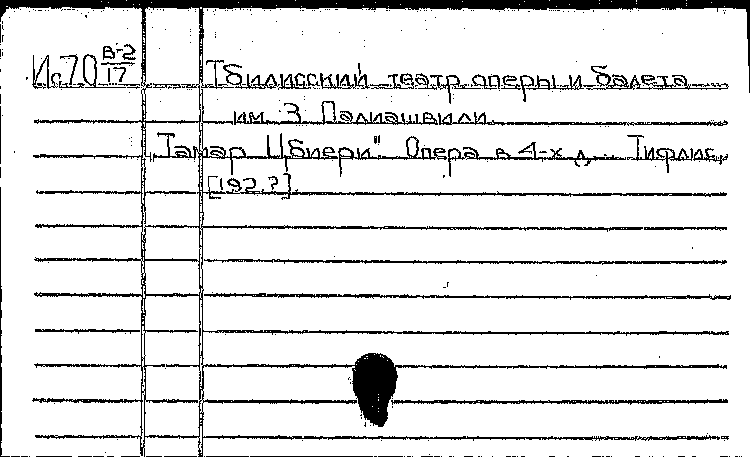 Ис70 В-2/17 Тбилисский театр оперы и балета
им. З. Палиашвили.
"Тамар Цбиери". Опера в 4-х д. Тифлис,
[192.?].